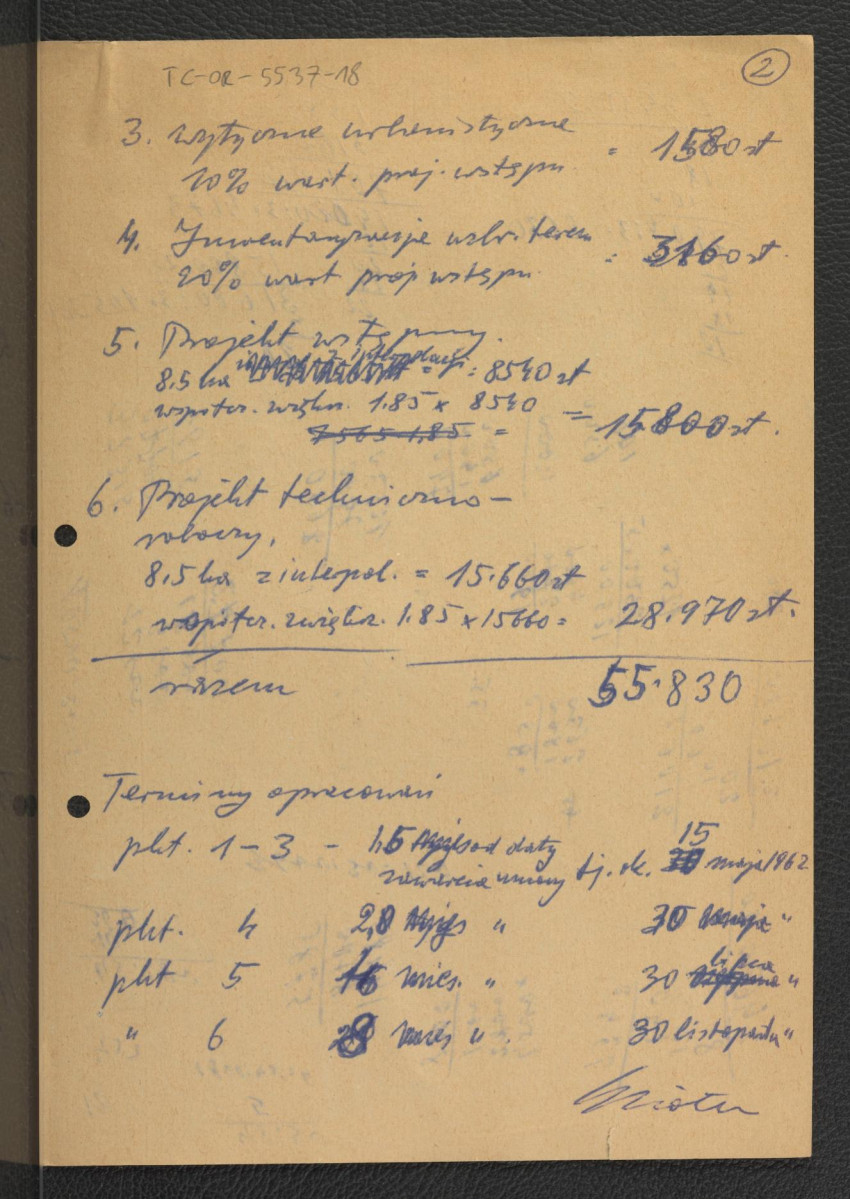 TC-OR-5537-18
2
3. Wytyczne urbanistyczne
10% wart. proj. wstępn. = 1580 zł
4. Inwentaryzacja urbr. teren
20% wart proj wstępn. = 3160 zł.
5. Projekt wstępny.
8.5 ha z interpolacji = 8540 zł
współcz. zwiększ. 1.85 x 8540 = 15800 zł.
7565 1.85 =
6. Projekt techniczno-
roboczy.
8.5 ha z interpol. = 15.660 zł
współcz. zwiększ. 1.85 x 15660 = 28.970 zł.
razem 55.830
Terminy opracowań
pkt. 1-3 - 1,5 mies od daty 15
zawarcia umowy tj. ok. maja 1962
pkt. 4 2,0 mies " 30 maja "
pkt 5 mies. " 30 lipca "
" 6 8 mies " . 30 listopada "